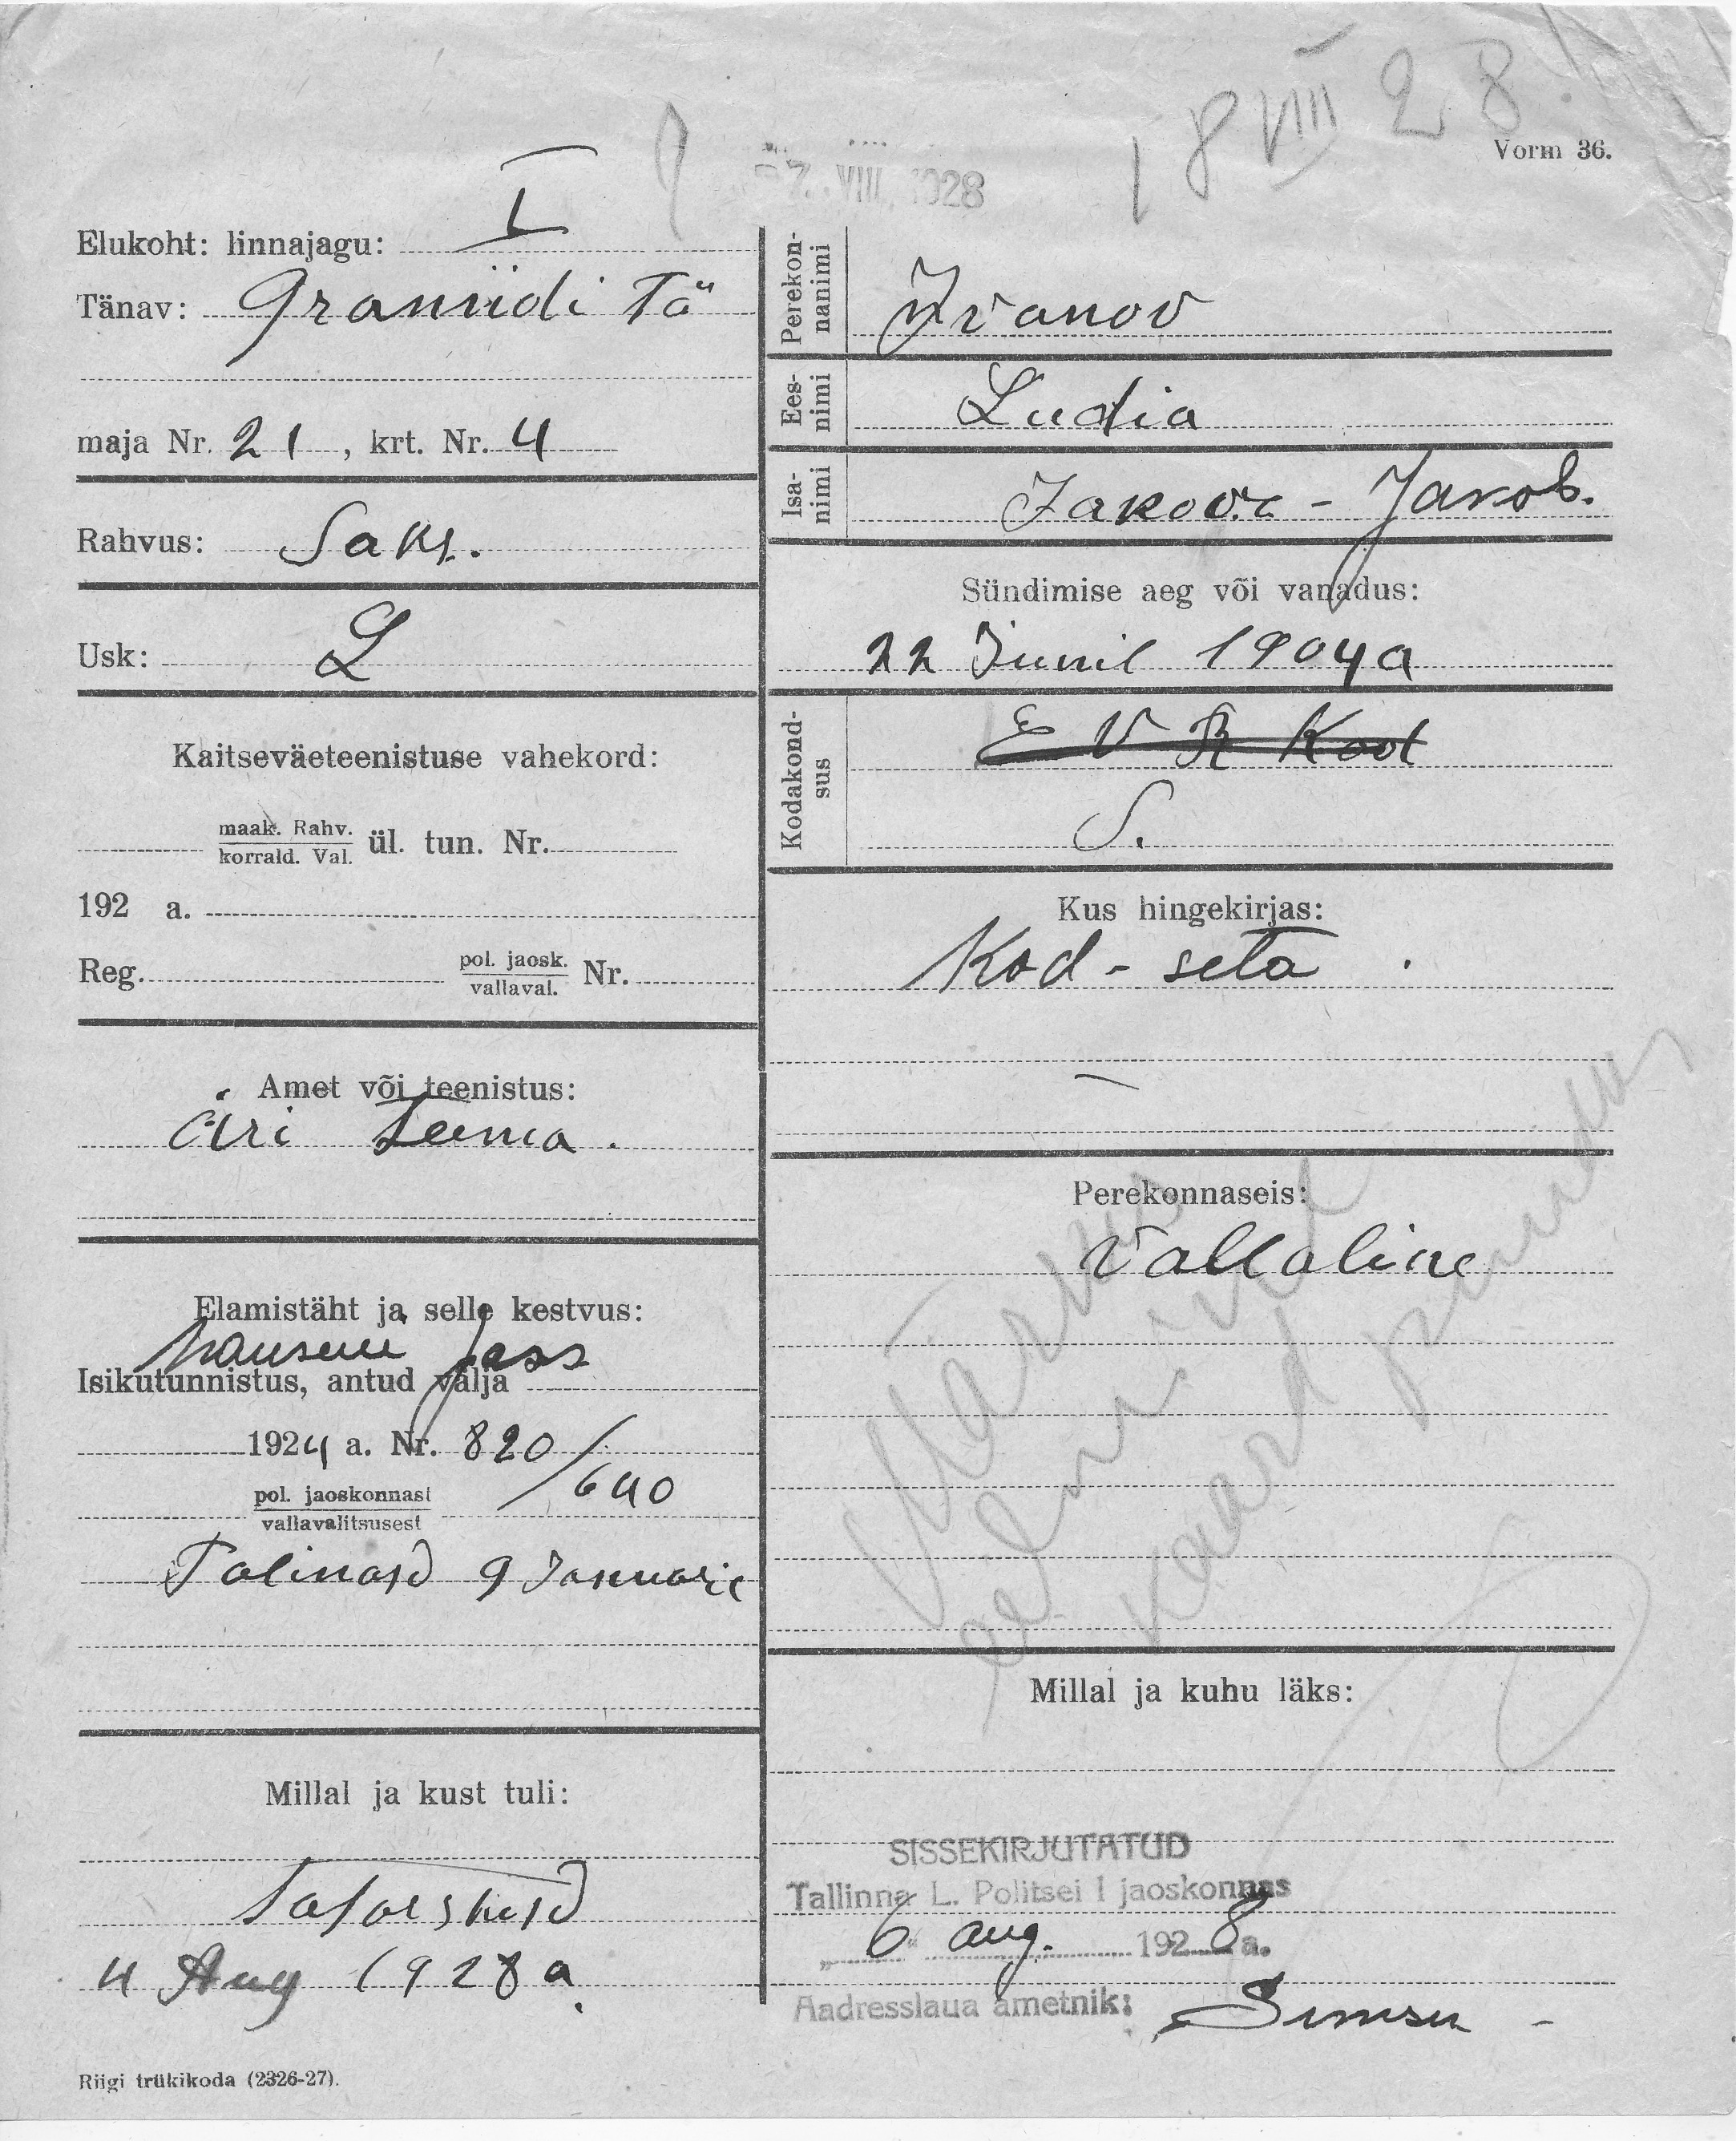 18 VIII 28
VIII. 1928
Vorm 36.
Elukoht: linnajagu: I
Tänav: Graniidi Tä
maja Nr. 21, krt. Nr. 4
Rahvus: Saks.
Usk: L
Kaitseväeteenistuse vahekord:
maak. Rahv. ül. tun. Nr.
korrald. Val.
192 a.
Reg. pol. jaosk. Nr.
vallaval.
Amet või teenistus:
Äri
Elamistäht ja selle kestvus:
pass
Isikutunnistus, antud välja
1924 a. Nr. 820/640
pol. jaoskonnast
vallavalitsusest
Talinasd 9 Januaril
Millal ja kust tuli:
4 Aug 1928 a.
Riigi trükikoda (2326-27).
Perekonnanimi
Ivanov
Eesnimi
Ludia
Isanimi
Jakob.
Sündimise aeg või vanadus:
22 Junil 1904 a
Kodakondsus
E V R Kod
S.
Kus hingekirjas:
Kod - seta
Perekonnaseis:
Vallaline
kaard
Millal ja kuhu läks:
SISSEKIRJUTATUD
Tallinna L. Politsei I jaoskonnas
„6" aug. 1928 a.
Aadresslaua ametnik: